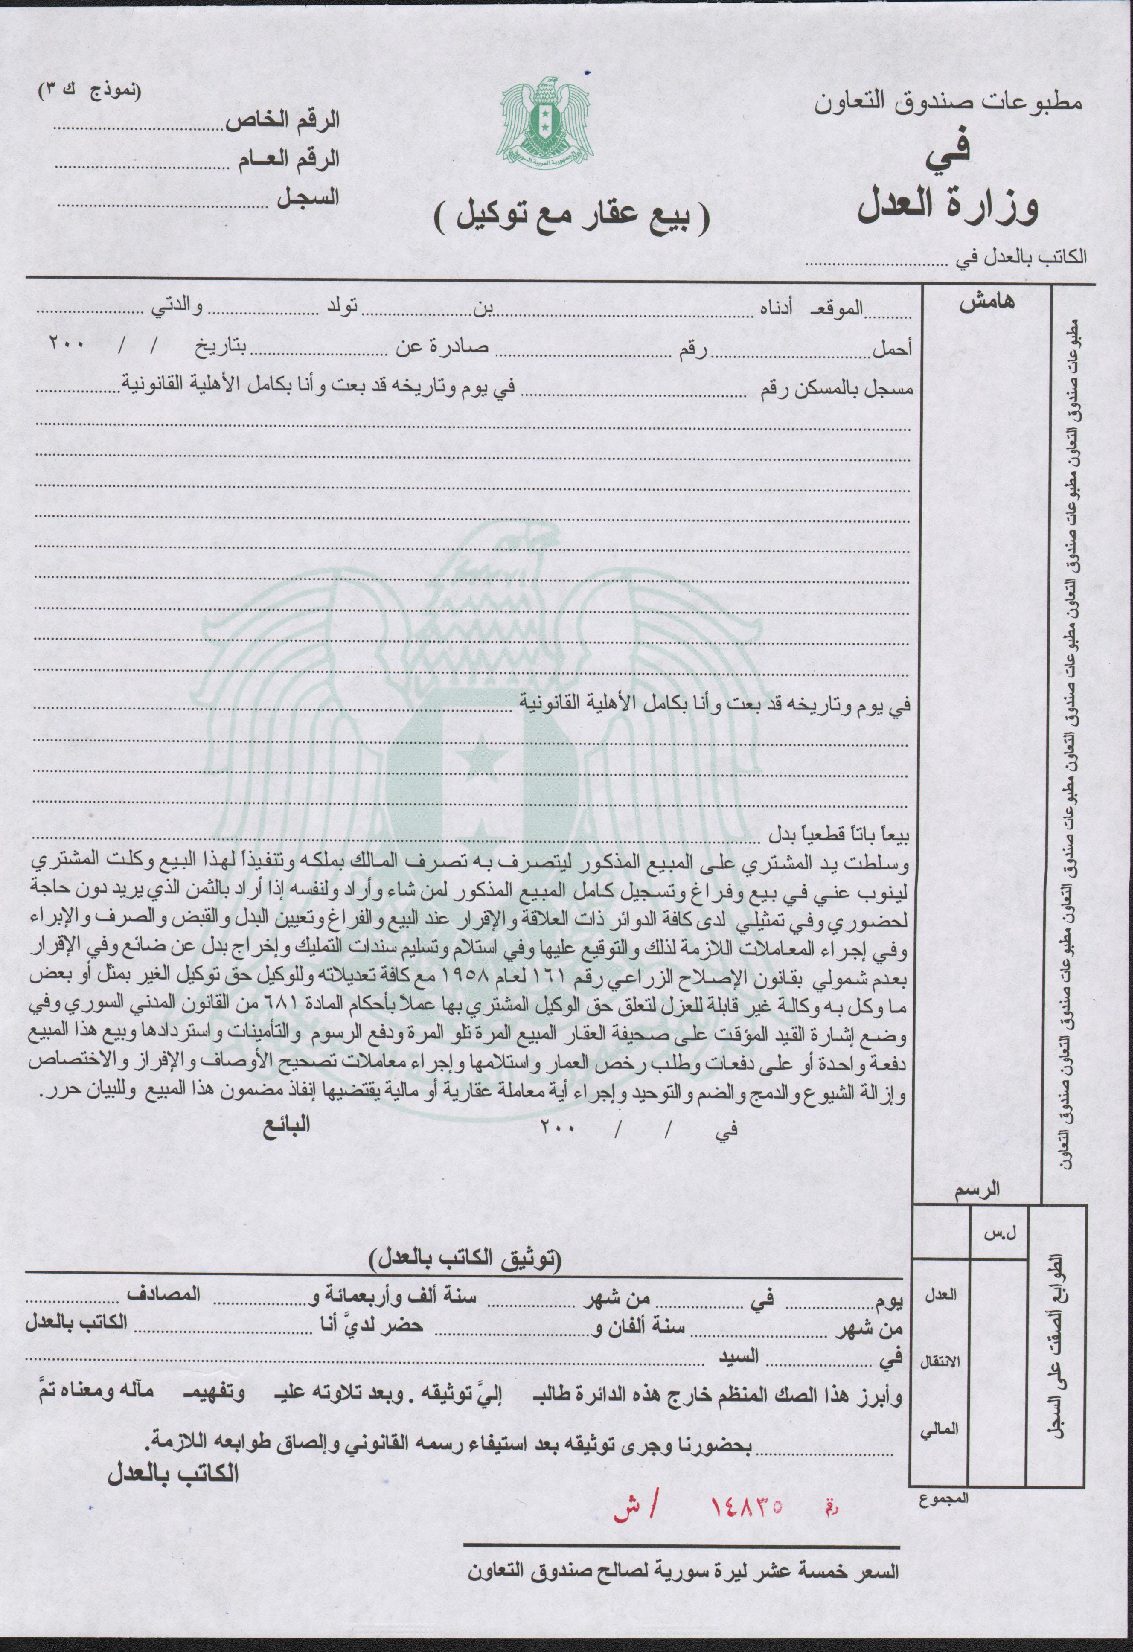 مطبوعات صندوق التعاون
في
وزارة العدل
الكاتب بالعدل في ..........
(نموذج ك ٣)
الرقم الخاص ..........
الرقم العـام ..........
السجل ..........
( بيع عقار مع توكيل )
هامش
.......... الموقعـ أدناه .......... بن .......... تولد .......... والدتي ..........
أحمل .......... رقم .......... صادرة عن .......... بتاريخ / / ٢٠٠
مسجل بالمسكن رقم .......... في يوم وتاريخه قد بعت وأنا بكامل الأهلية القانونية ..........
في يوم وتاريخه قد بعت وأنا بكامل الأهلية القانونية ..........
بيعاً باتاً قطعياً بدل ..........
وسلطت يد المشتري على المبيع المذكور ليتصرف به تصرف المالك بملكه وتنفيذاً لهذا البيع وكلت المشتري
لينوب عني في بيع وفراغ وتسجيل كامل المبيع المذكور لمن شاء وأراد ولنفسه إذا أراد بالثمن الذي يريد دون حاجة
لحضوري وفي تمثيلي لدى كافة الدوائر ذات العلاقة والإقرار عند البيع والفراغ وتعيين البدل والقبض والصرف والإبراء
وفي إجراء المعاملات اللازمة لذلك والتوقيع عليها وفي استلام وتسليم سندات التمليك وإخراج بدل عن ضائع وفي الإقرار
بعدم شمولي بقانون الإصلاح الزراعي رقم ١٦١ لعام ١٩٥٨ مع كافة تعديلاته وللوكيل حق توكيل الغير بمثل أو بعض
ما وكل به وكالة غير قابلة للعزل لتعلق حق الوكيل المشتري بها عملاً بأحكام المادة ٦٨١ من القانون المدني السوري وفي
وضع إشارة القيد المؤقت على صحيفة العقار المبيع المرة تلو المرة ودفع الرسوم والتأمينات واستردادها وبيع هذا المبيع
دفعة واحدة أو على دفعات وطلب رخص العمار واستلامها وإجراء معاملات تصحيح الأوصاف والإفراز والاختصاص
وإزالة الشيوع والدمج والضم والتوحيد وإجراء أية معاملة عقارية أو مالية يقتضيها إنفاذ مضمون هذا المبيع وللبيان حرر.
في / / ٢٠٠ البائع
مطبوعات صندوق التعاون مطبوعات صندوق التعاون مطبوعات صندوق التعاون مطبوعات صندوق التعاون مطبوعات صندوق التعاون صندوق التعاون
الرسم
ل.س
العدل
الانتقال
المالي
المجموع
الطوابع ألصقت على السجل
(توثيق الكاتب بالعدل)
يوم .......... في .......... من شهر .......... سنة ألف وأربعمائة و .......... المصادف ..........
من شهر .......... سنة ألفان و .......... حضر لديَّ أنا .......... الكاتب بالعدل
في .......... السيد ..........
وأبرز هذا الصك المنظم خارج هذه الدائرة طالبـ إليَّ توثيقه . وبعد تلاوته عليـ وتفهيمـ مآله ومعناه تمَّ
.......... بحضورنا وجرى توثيقه بعد استيفاء رسمه القانوني وإلصاق طوابعه اللازمة.
الكاتب بالعدل
رقم ١٤٨٣٥ / ش
السعر خمسة عشر ليرة سورية لصالح صندوق التعاون